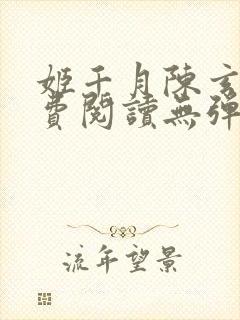 姬千月陳玄
費閱讀無彈
流年望景